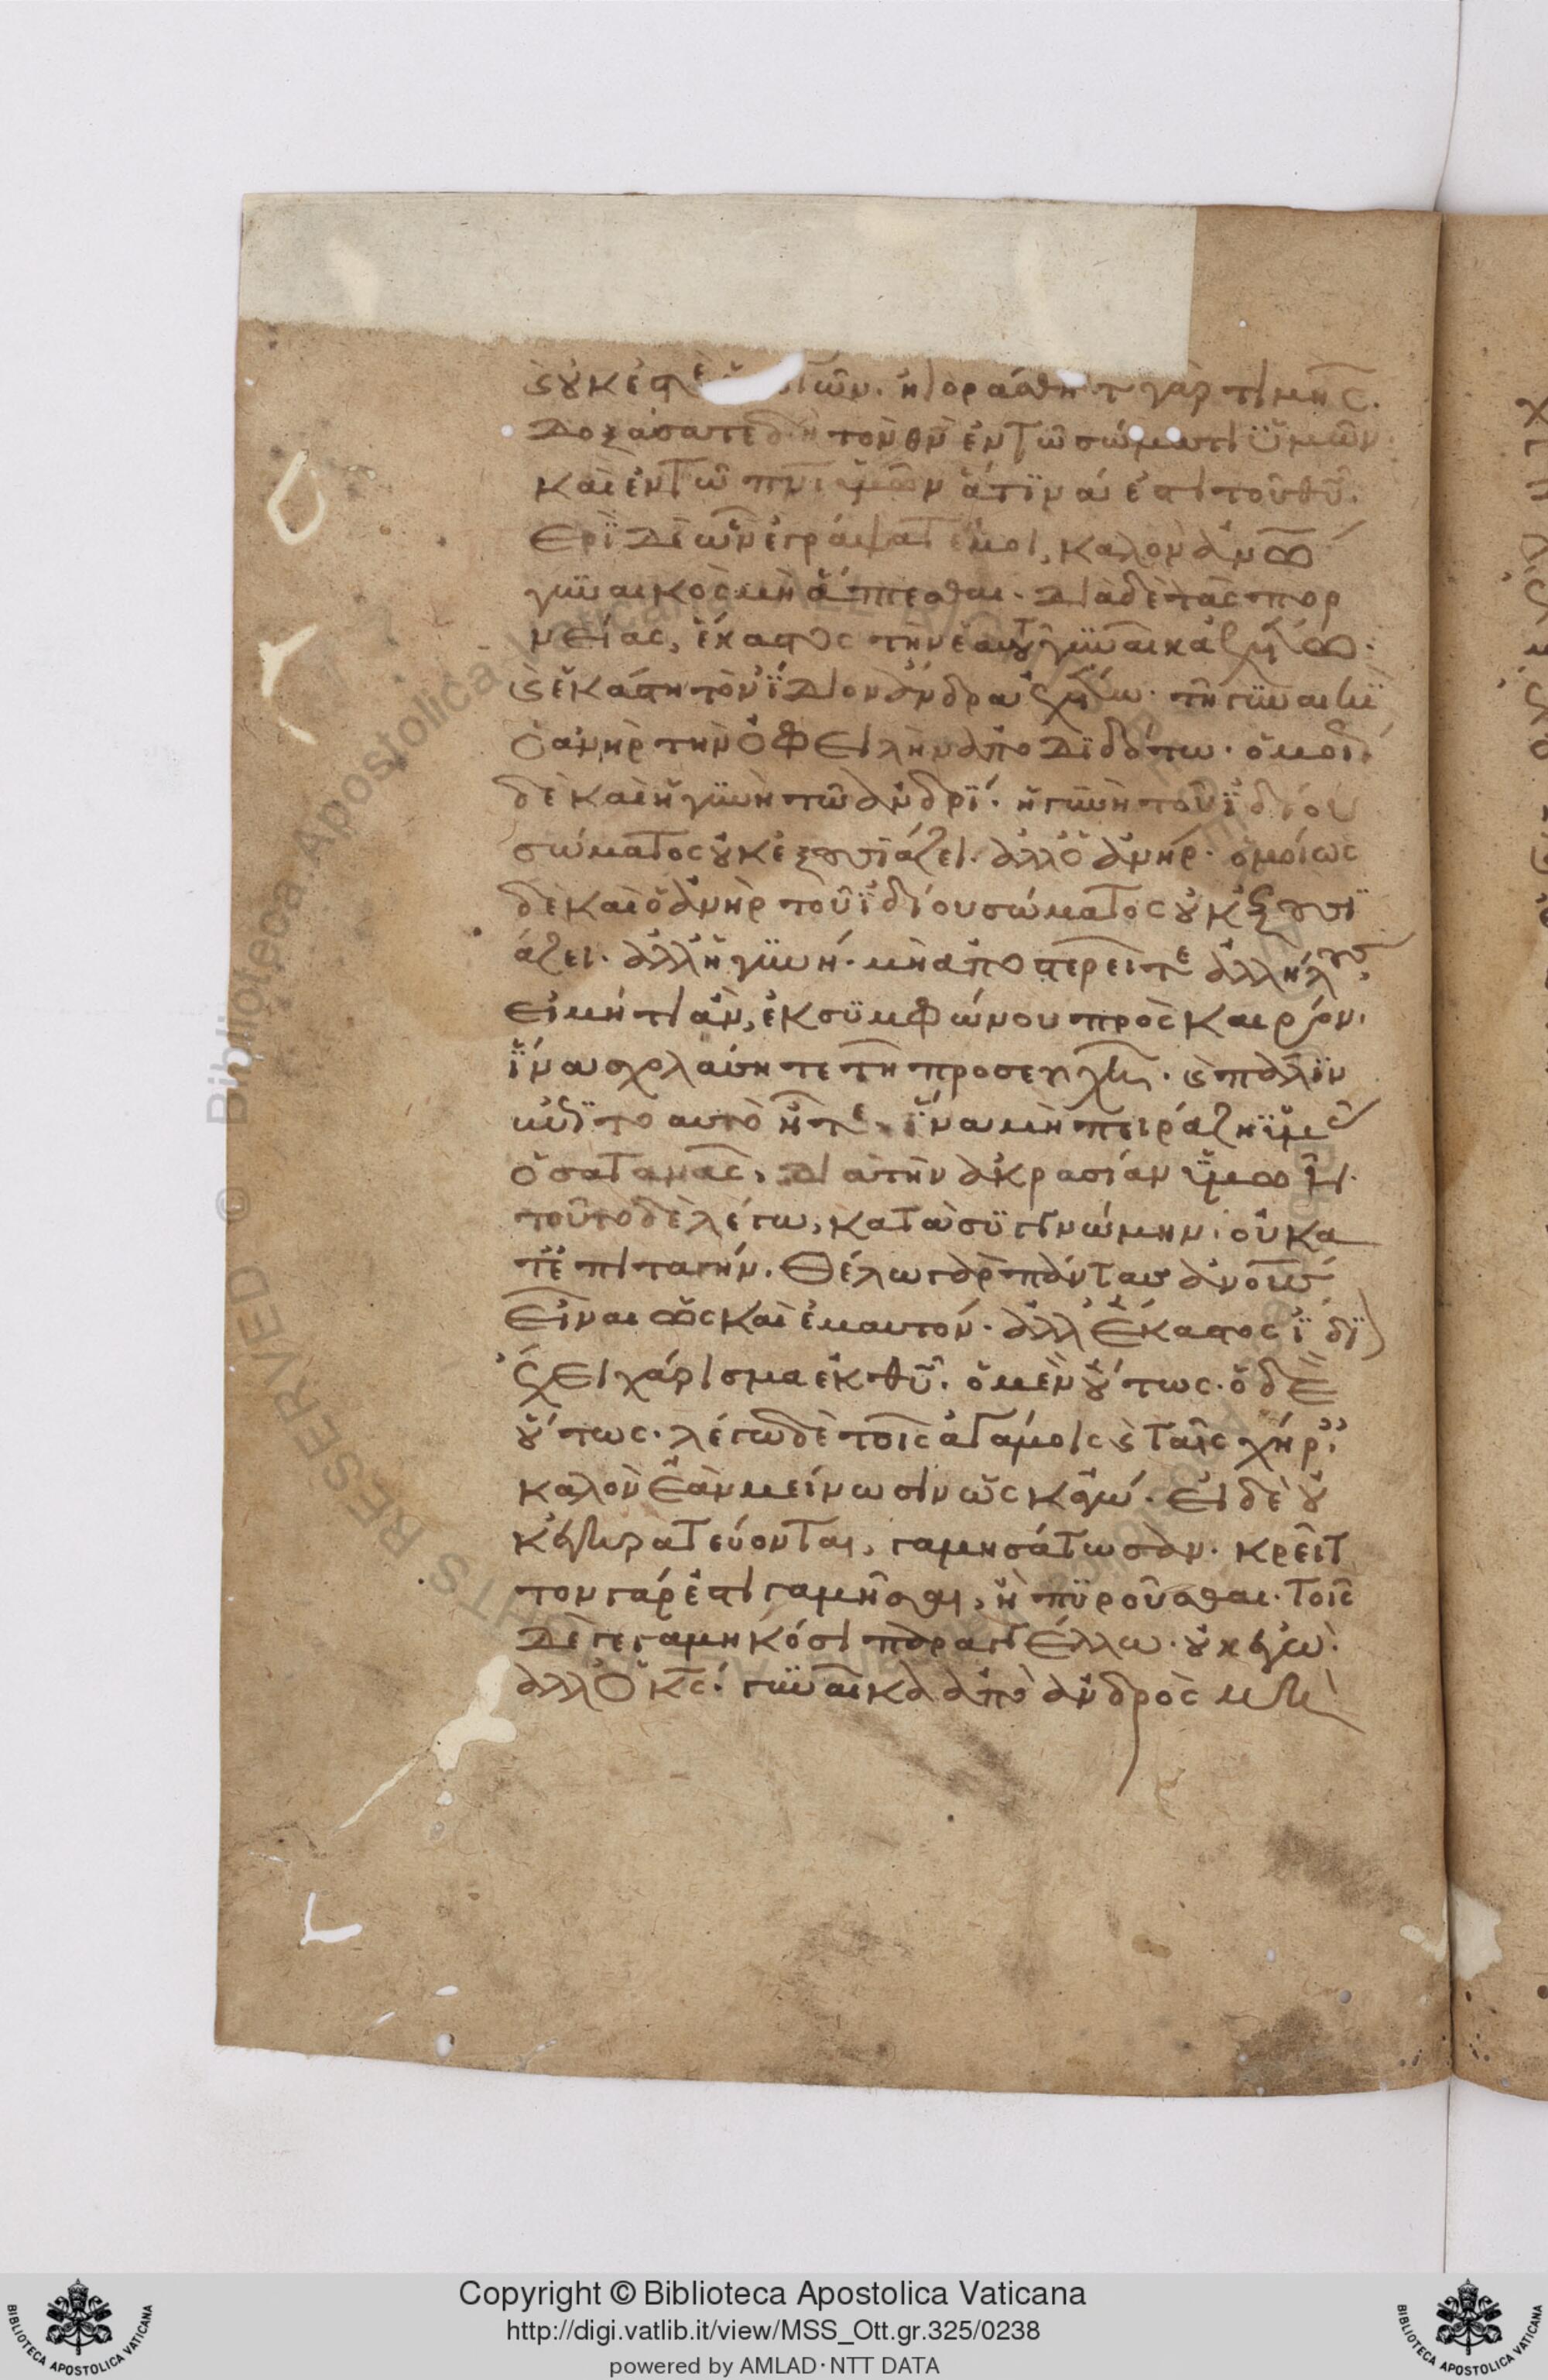 ϗ οὐκ ἐστὲ ἑαυτῶν. ἠγοράσθητ γὰρ τιμῆς.
Δοξάσατε δὴ τὸν θν ἐν τῶ σώματι ὑμῶν
καὶ ἐν τῶ πνι ὑμῶν ἅτινά ἐστι τοῦ θυ.
Ερὶ δὲ ὧν ἐγράψατέ μοι, καλὸν ανω
γυναικὸς μὴ ἅπτεσθαι. Διὰ δὲ τὰς πορ
νείας, ἕκαστος τὴν ἑαυτ γυναῖκα ἐχέτω.
ϗ ἑκάστη τὸν ἴδιον ἄνδρα ἐχέτω. τῆ γυναικὶ
ὁ ἀνὴρ τὴν ὀφειλὴν ἀποδιδότω. ὁμοί
δὲ καὶ ἡ γυνὴ τῶ ἀνδρί. ἡ γυνὴ τοῦ ἰδίου
σώματος οὐκ ἐξουσιάζει. ἀλλ ὁ ἀνήρ. ὁμοίως
δὲ καὶ ὁ ἀνὴρ τοῦ ἰδίου σώματος οὐκ ἐξουσι
άζει. ἀλλ ἡ γυνή. μὴ ἀποστερεῖτε ἀλλήλους,
εἰ μή τι ἂν, ἐκ συμφώνου πρὸς καιρόν.
ἵνα σχολάσητε τῆ προσευχῆ. ϗ πάλιν
ἐπὶ το αυτὸ ἦτε. ἵνα μὴ πειράζη ὑμᾶς
ὁ σατανᾶς, διὰ τὴν ἀκρασίαν ὑμῶν.
τοῦτο δὲ λέγω, κατὰ συγγνώμην. οὐ κα
τ ἐπιταγήν. Θέλω γὰρ πάντασ ἀνους
εἶναι ὡς καὶ ἐμαυτόν. ἀλλ ἕκαστος ἴδι
ἔχει χάρισμα ἐκ θυ. ὁ μὲν οὕτως. ὁ δὲ
οὕτως. λέγω δὲ τοῖς ἀγάμοις ϗ ταῖς χήραις
καλὸν ἐὰν μείνωσιν ὡς κἀγώ. εἰ δὲ οὐ
κ ἐγκρατεύονται, γαμησάτωσαν. κρεῖτ
τον γάρ ἐστι γαμῆσαι, ἢ πυροῦσθαι. τοῖς
δὲ γεγαμηκόσι παραγγέλλω. οὐκ ἐγὼ.
ἀλλ ὁ κς. γυναῖκα ἀπὸ ἀνδρὸς μὴ
Copyright © Biblioteca Apostolica Vaticana
http://digi.vatlib.it/view/MSS_Ott.gr.325/0238
powered by AMLAD·NTT DATA